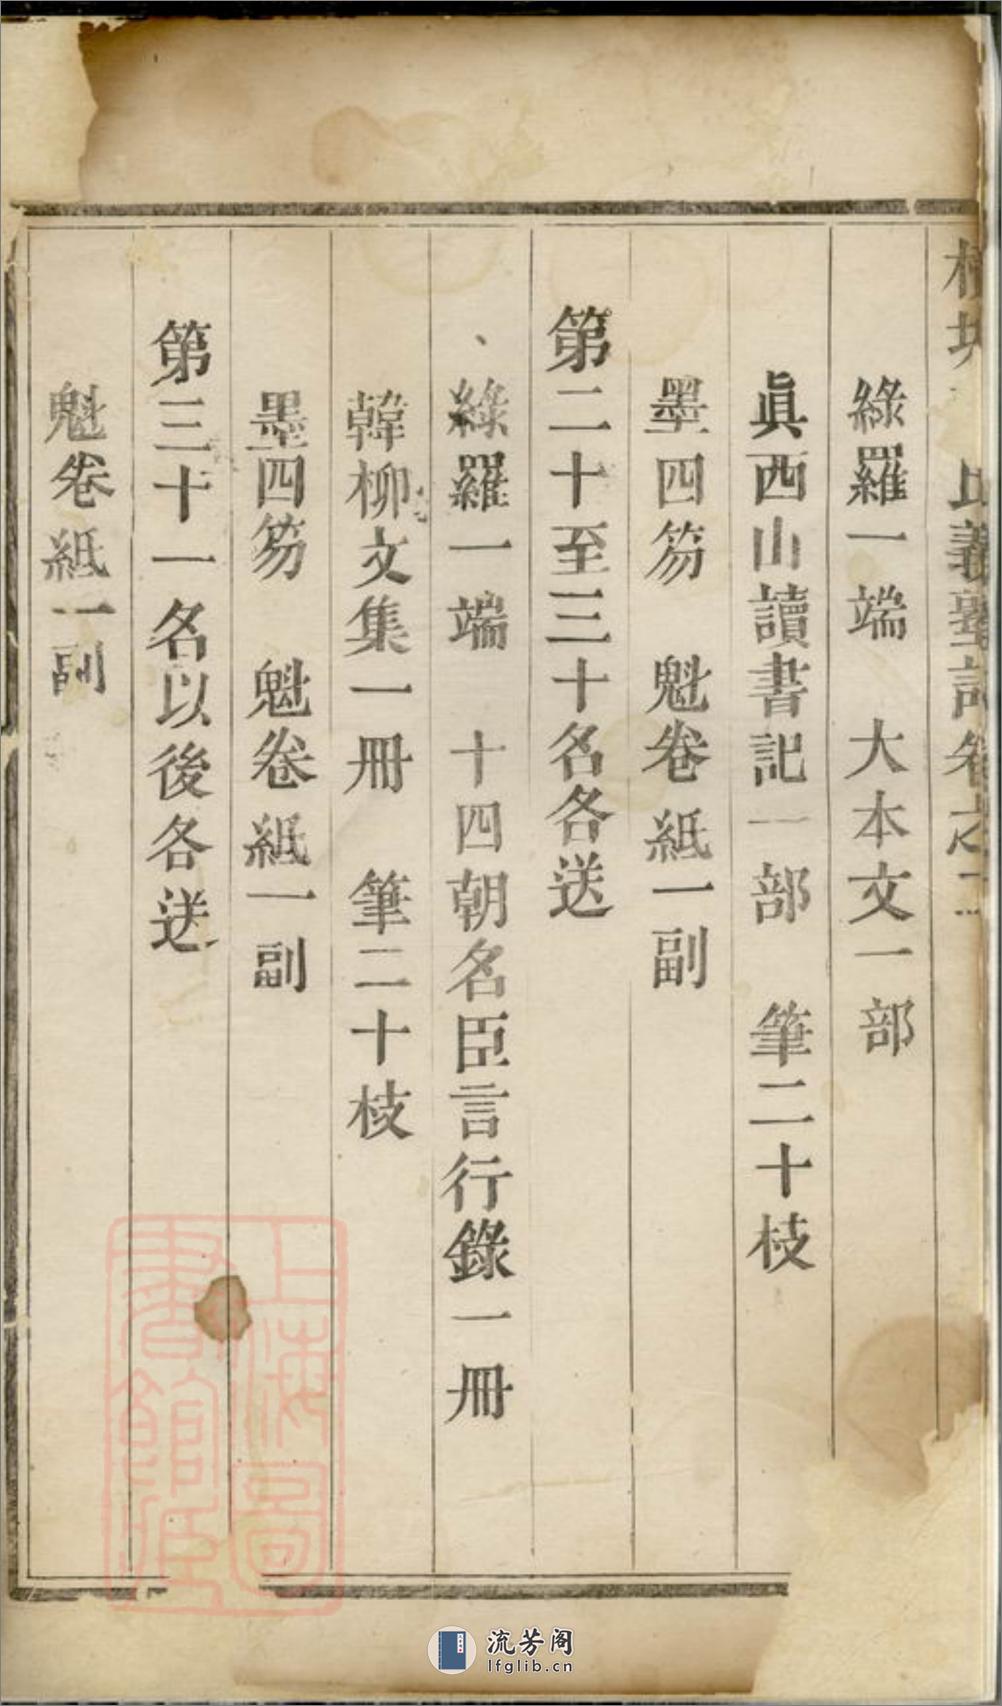 氏義塾記卷之二
綠羅一端　大本文一部
眞西山讀書記一部　筆二十枝
墨四笏　魁卷紙一副
第二十至三十名各送
綠羅一端　十四朝名臣言行錄一冊
韓柳文集一冊　筆二十枝
墨四笏　魁卷紙一副
第三十一名以後各送
魁卷紙一副
上海圖書館藏
流芳阁
lfglib.cn